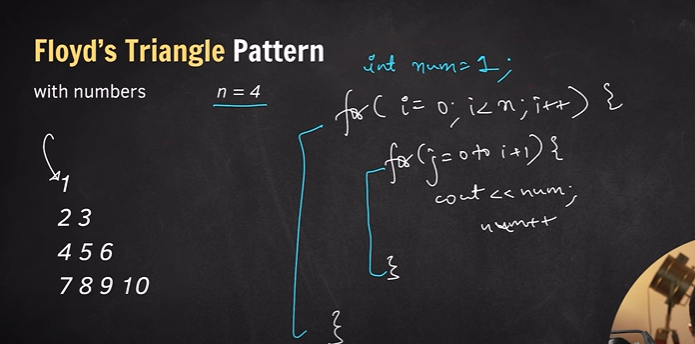 Floyd's Triangle Pattern
with numbers
n = 4
1
2 3
4 5 6
7 8 9 10
int num = 1;
for( i = 0; i < n; i++) {
for(j = 0 to i+1) {
cout << num;
num++
}
}